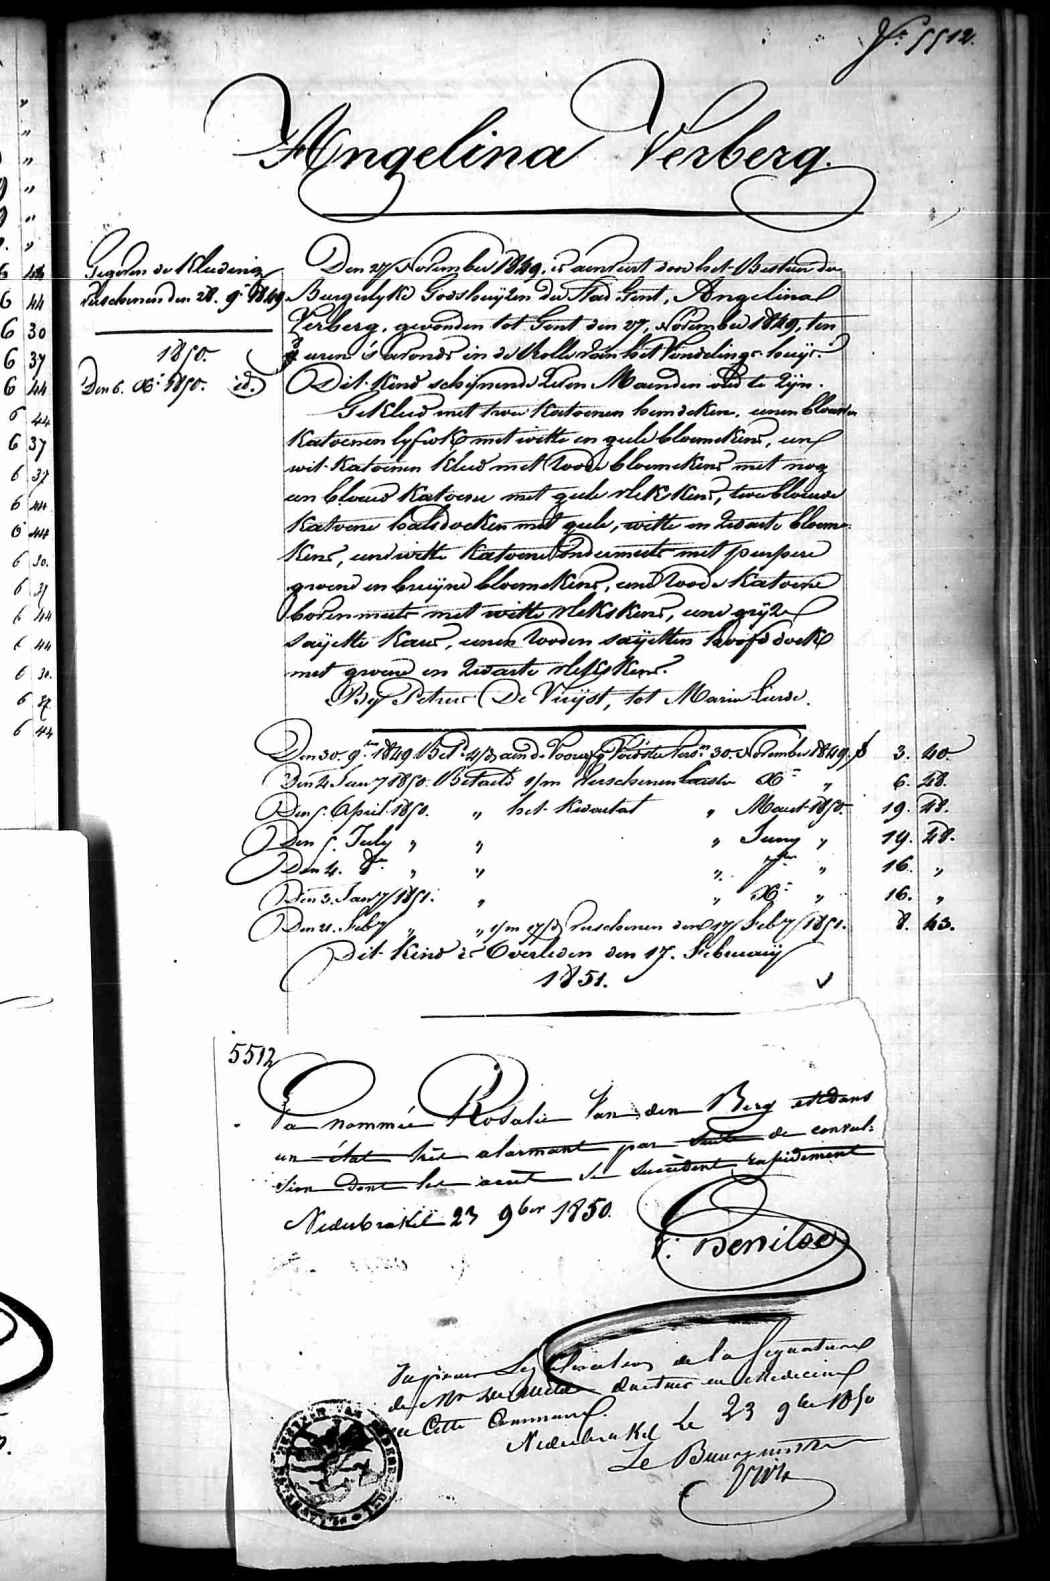 N.° 5512.
Angelina Verberg.
Gegeven de Kleeding
verschenen den 28. 9.r 1849.
1850.
Den 6. X.r 1850. id.
Den 27 November 1849, is aenveert door het Bestuer der
Burgerlyke Godshuyzen der Stad Gent, Angelina
Verberg, gevonden tot Gent den 27, November 1849, ten
uren 's avonds in de Rolle van het Vondelings-huys.
Dit Kind schijnende zeven Maenden oud te zijn.
Gekleed met twee katoenen hemdeken, eenen blauwen
katoenen lyfrok met witte en geele bloemekens, een
wit katoenen kleed met roode bloemekens met nog
een blauw katoene met geele vlekskens, twee blauwe
katoene halsdoeken met geele, witte en zwarte bloeme-
kens, eene witte katoene ondermuts met purpere
groene en bruyne bloemekens, eene roode katoene
bovenmuts met witte vlekskens, eene grijze
sayette kous, eenen rooden sayetten hoofddoek
met groene en zwarte vlekskens.
By Petrus De Vuijst, tot Maria Lierde.
Den 30. 9.r 1849 vers.n 30. November 1849. f 3. 40.
Den 4 Jan.y 1850. Betaeld 1/m verschenen laeste X.r " 6. 28.
Den 5. April 1850. " het kwartael " Maert 1850. 19. 28.
Den 5. July " " " Juny " 19. 28.
Den 4. 8.r " " " 7.r " 16. "
Den 3. Jan.y 1851. " " X.r " 16. "
Den 21. Feb.y " " 1/m 17/d verschenen den 17 Feb.y 1851. 8. 43.
Dit Kind is Overleden den 17. February
1851.
5512
La nommée Rosalie Van den Berg est dans
un état très alarmant par suite de convul-
sion dont les accès se succèdent rapidement
Nederbrakel 23 9ber 1850.
de la Signature
de Mr docteur en Medecine
en Cette Commune.
Nederbrakel Le 23 9bre 1850
Le Bourgmestre
6 44
6 44
6 30
6 37
6 44
6 44
6 37
6 37
6 44
6 44
6 30.
6 37
6 44
6 44
6 30.
6 37
6 44